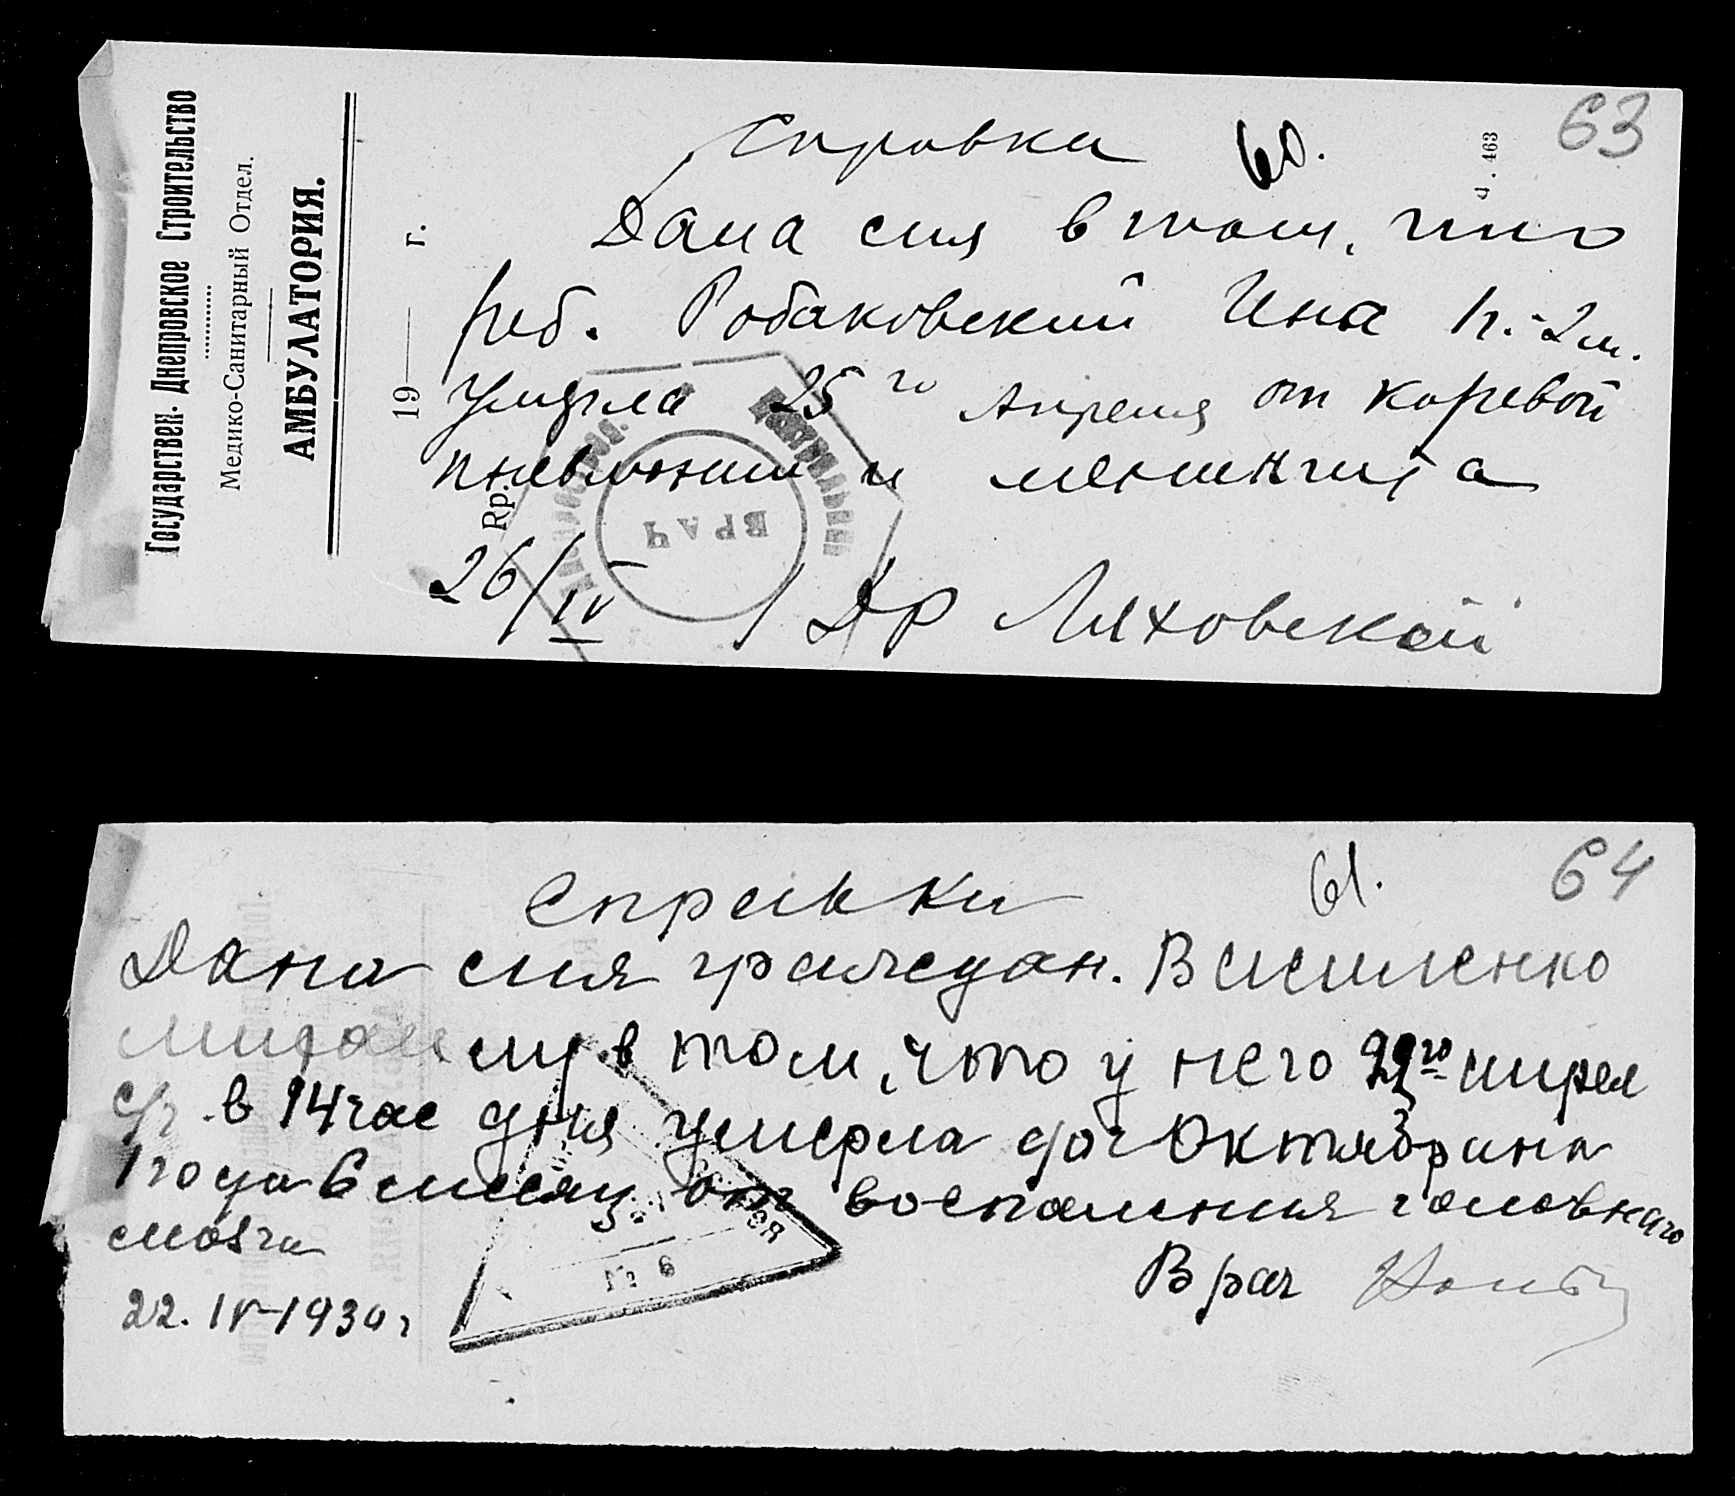 63
60.
Ч. 463
Государствен. Днепровское Строительство
Медико-Санитарный Отдел.
АМБУЛАТОРИЯ.
19 — г.
Rp.
Справка
Дана сия в том, что
реб. Робаковский Инa 1г.-2м.
умерла 25го Апреля от коревой
пневмонии и менингита
26/IV / ДР Ляховской
ВРАЧ
64
61.
Справка
Дана сия граждан. Василенко
в том, что у него
с/г. в 14 час дня умерла доч Октябрина
1 года 6 месяц от воспаления головнаго
мозга
22.IV-1930г
Врач
№ 6